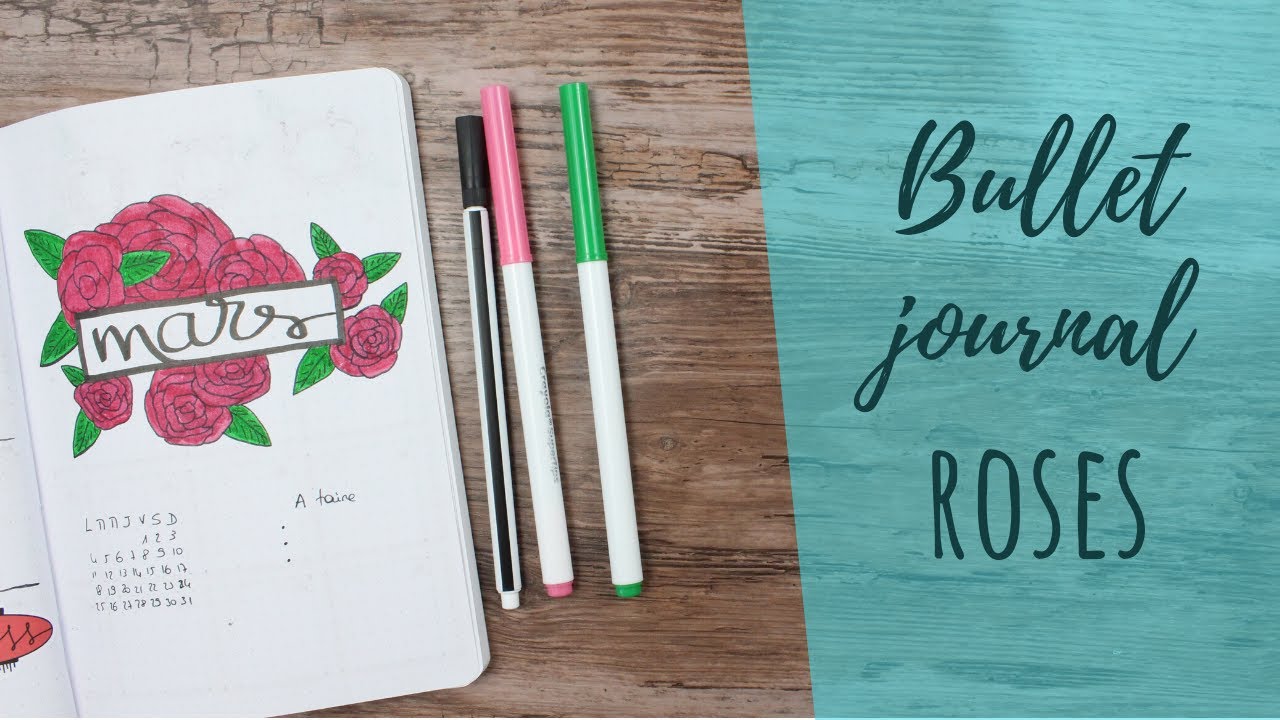 mars
L M M J V S D
1 2 3
4 5 6 7 8 9 10
11 12 13 14 15 16 17
18 19 20 21 22 23 24
25 26 27 28 29 30 31
A faire
ss
Crayola Supertips
Bullet
journal
ROSES